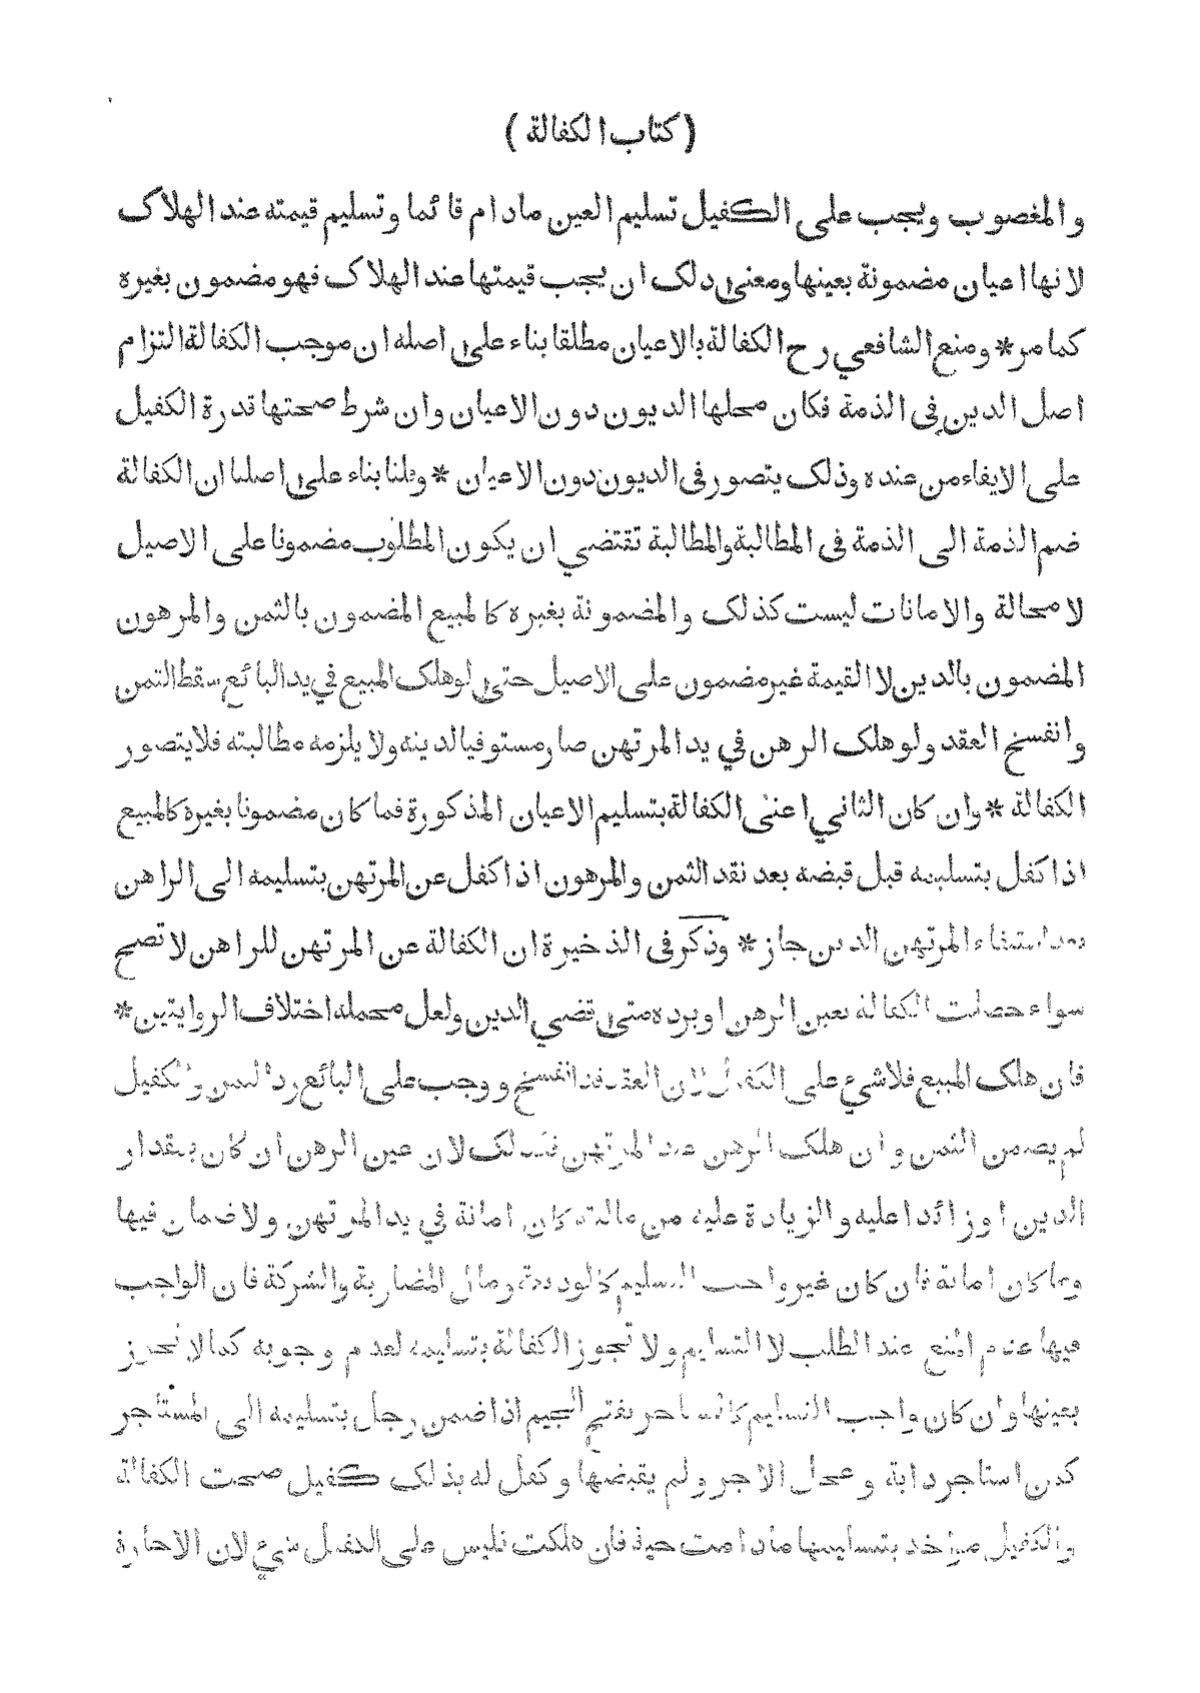 ( كتاب الكفالة )
والمغصوب ويجب على الكفيل تسليم العين مادام قائما وتسليم قيمته عند الهلاك
لانها اعيان مضمونة بعينها ومعنى ذلك ان يجب قيمتها عند الهلاك فهو مضمون بغيره
كما مر * ومنع الشافعي رح الكفالة بالاعيان مطلقا بناء على اصله ان موجب الكفالة التزام
اصل الدين في الذمة فكان محلها الديون دون الاعيان وان شرط صحتها قدرة الكفيل
على الايفاء من عنده وذلك يتصور في الديون دون الاعيان * وقلنا بناء على اصلنا ان الكفالة
ضم الذمة الى الذمة في المطالبة والمطالبة تقتضي ان يكون المطلوب مضمونا على الاصيل
لا محالة والامانات ليست كذلك والمضمونة بغيره كالمبيع المضمون بالثمن والمرهون
المضمون بالدين لا القيمة غير مضمون على الاصيل حتى لو هلك المبيع في يد البائع سقط الثمن
وانفسخ العقد ولو هلك الرهن في يد المرتهن صار مستوفيا لدينه ولا يلزمه مطالبته فلا يتصور
الكفالة * وان كان الثاني اعني الكفالة بتسليم الاعيان المذكورة فما كان مضمونا بغيره كالمبيع
اذا كفل بتسليمه قبل قبضه بعد نقد الثمن والمرهون اذا كفل عن المرتهن بتسليمه الى الراهن
بعد استيفاء المرتهن الدين جاز * وذكر في الذخيرة ان الكفالة عن المرتهن للراهن لا تصح
سواء حصلت الكفالة بعين الرهن او برده متى قضي الدين ولعل محمله اختلاف الروايتين *
فان هلك المبيع فلا شيء على الكفيل لان العقد قد انفسخ ووجب على البائع رد الثمن والكفيل
لم يضمن الثمن وان هلك الرهن عند المرتهن فكذلك لان عين الرهن ان كان بمقدار
الدين او زائدا عليه والزيادة عليه من ماليته كان امانة في يد المرتهن ولا ضمان فيها
وما كان امانة فان كان غير واجب التسليم كالوديعة ومال المضاربة والشركة فان الواجب
فيها عدم المنع عند الطلب لا التسليم ولا تجوز الكفالة بتسليمه لعدم وجوبه كما لا تجوز
بعينها وان كان واجب التسليم كالمستأجر بفتح الجيم اذا ضمن رجل بتسليمه الى المستأجر
كمن استاجر دابة وعجل الاجر ولم يقبضها وكفل له بذلك كفيل صحت الكفالة
والكفيل مؤاخذ بتسليمها مادامت حية فان هلكت فليس على الكفيل شيء لان الاجارة